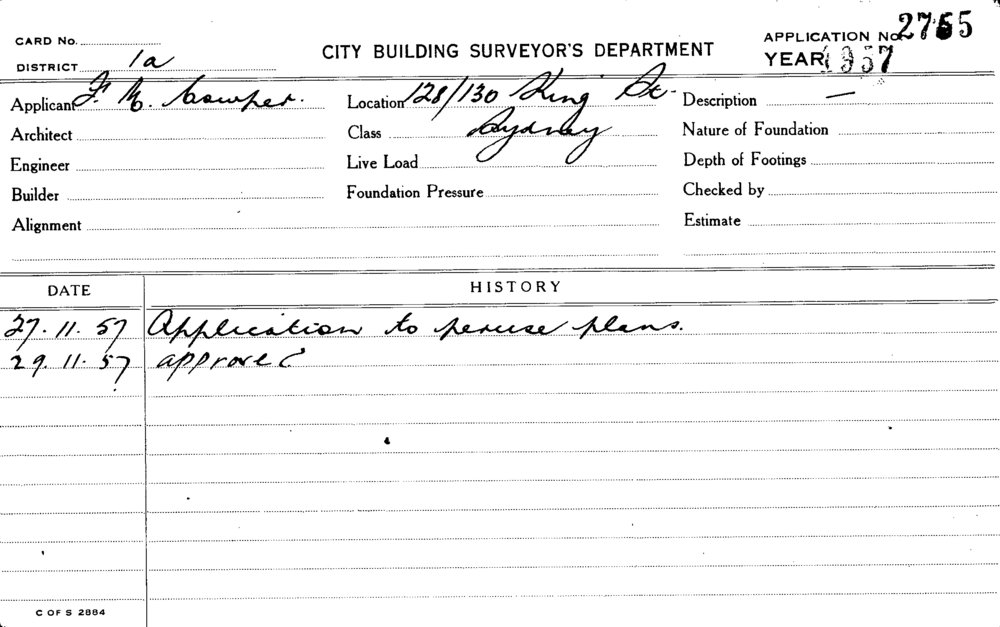 CARD No.
DISTRICT 1a
CITY BUILDING SURVEYOR'S DEPARTMENT
APPLICATION No. 2765
YEAR 1957
Applicant F. M. Cowper.
Location 128/130 King St.
Description —
Architect
Class Sydney
Nature of Foundation
Engineer
Live Load
Depth of Footings
Builder
Foundation Pressure
Checked by
Alignment
Estimate
DATE HISTORY
27.11.57 Application to peruse plans.
29.11.57 approved
C OF S 2884